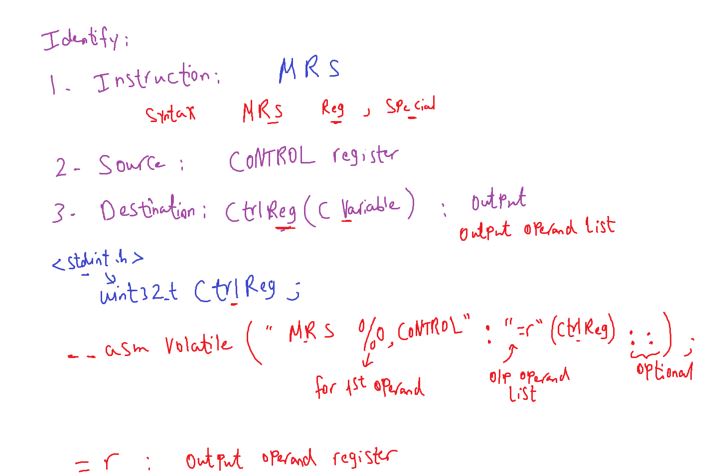 Identify:
1. Instruction: MRS
Syntax MRS Reg , Special
2- Source: CONTROL register
3- Destination: CtrlReg (C Variable) : output
output operand list
<stdint.h>
uint32_t CtrlReg ;
-- asm volatile ( " MRS %0, CONTROL" : "=r" (CtrlReg) : : ) ;
for 1st operand
o/p operand list
optional
= r : output operand register